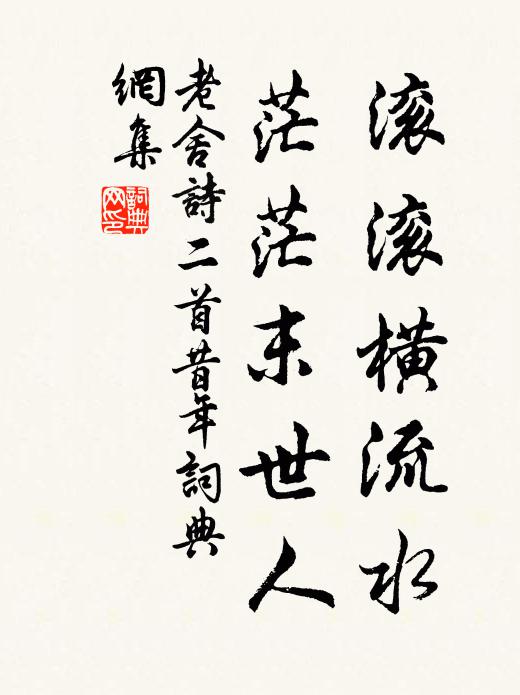 滚滚橫流水
茫茫末世人
老舍詩二首昔年詞典
網集
詞典
网印